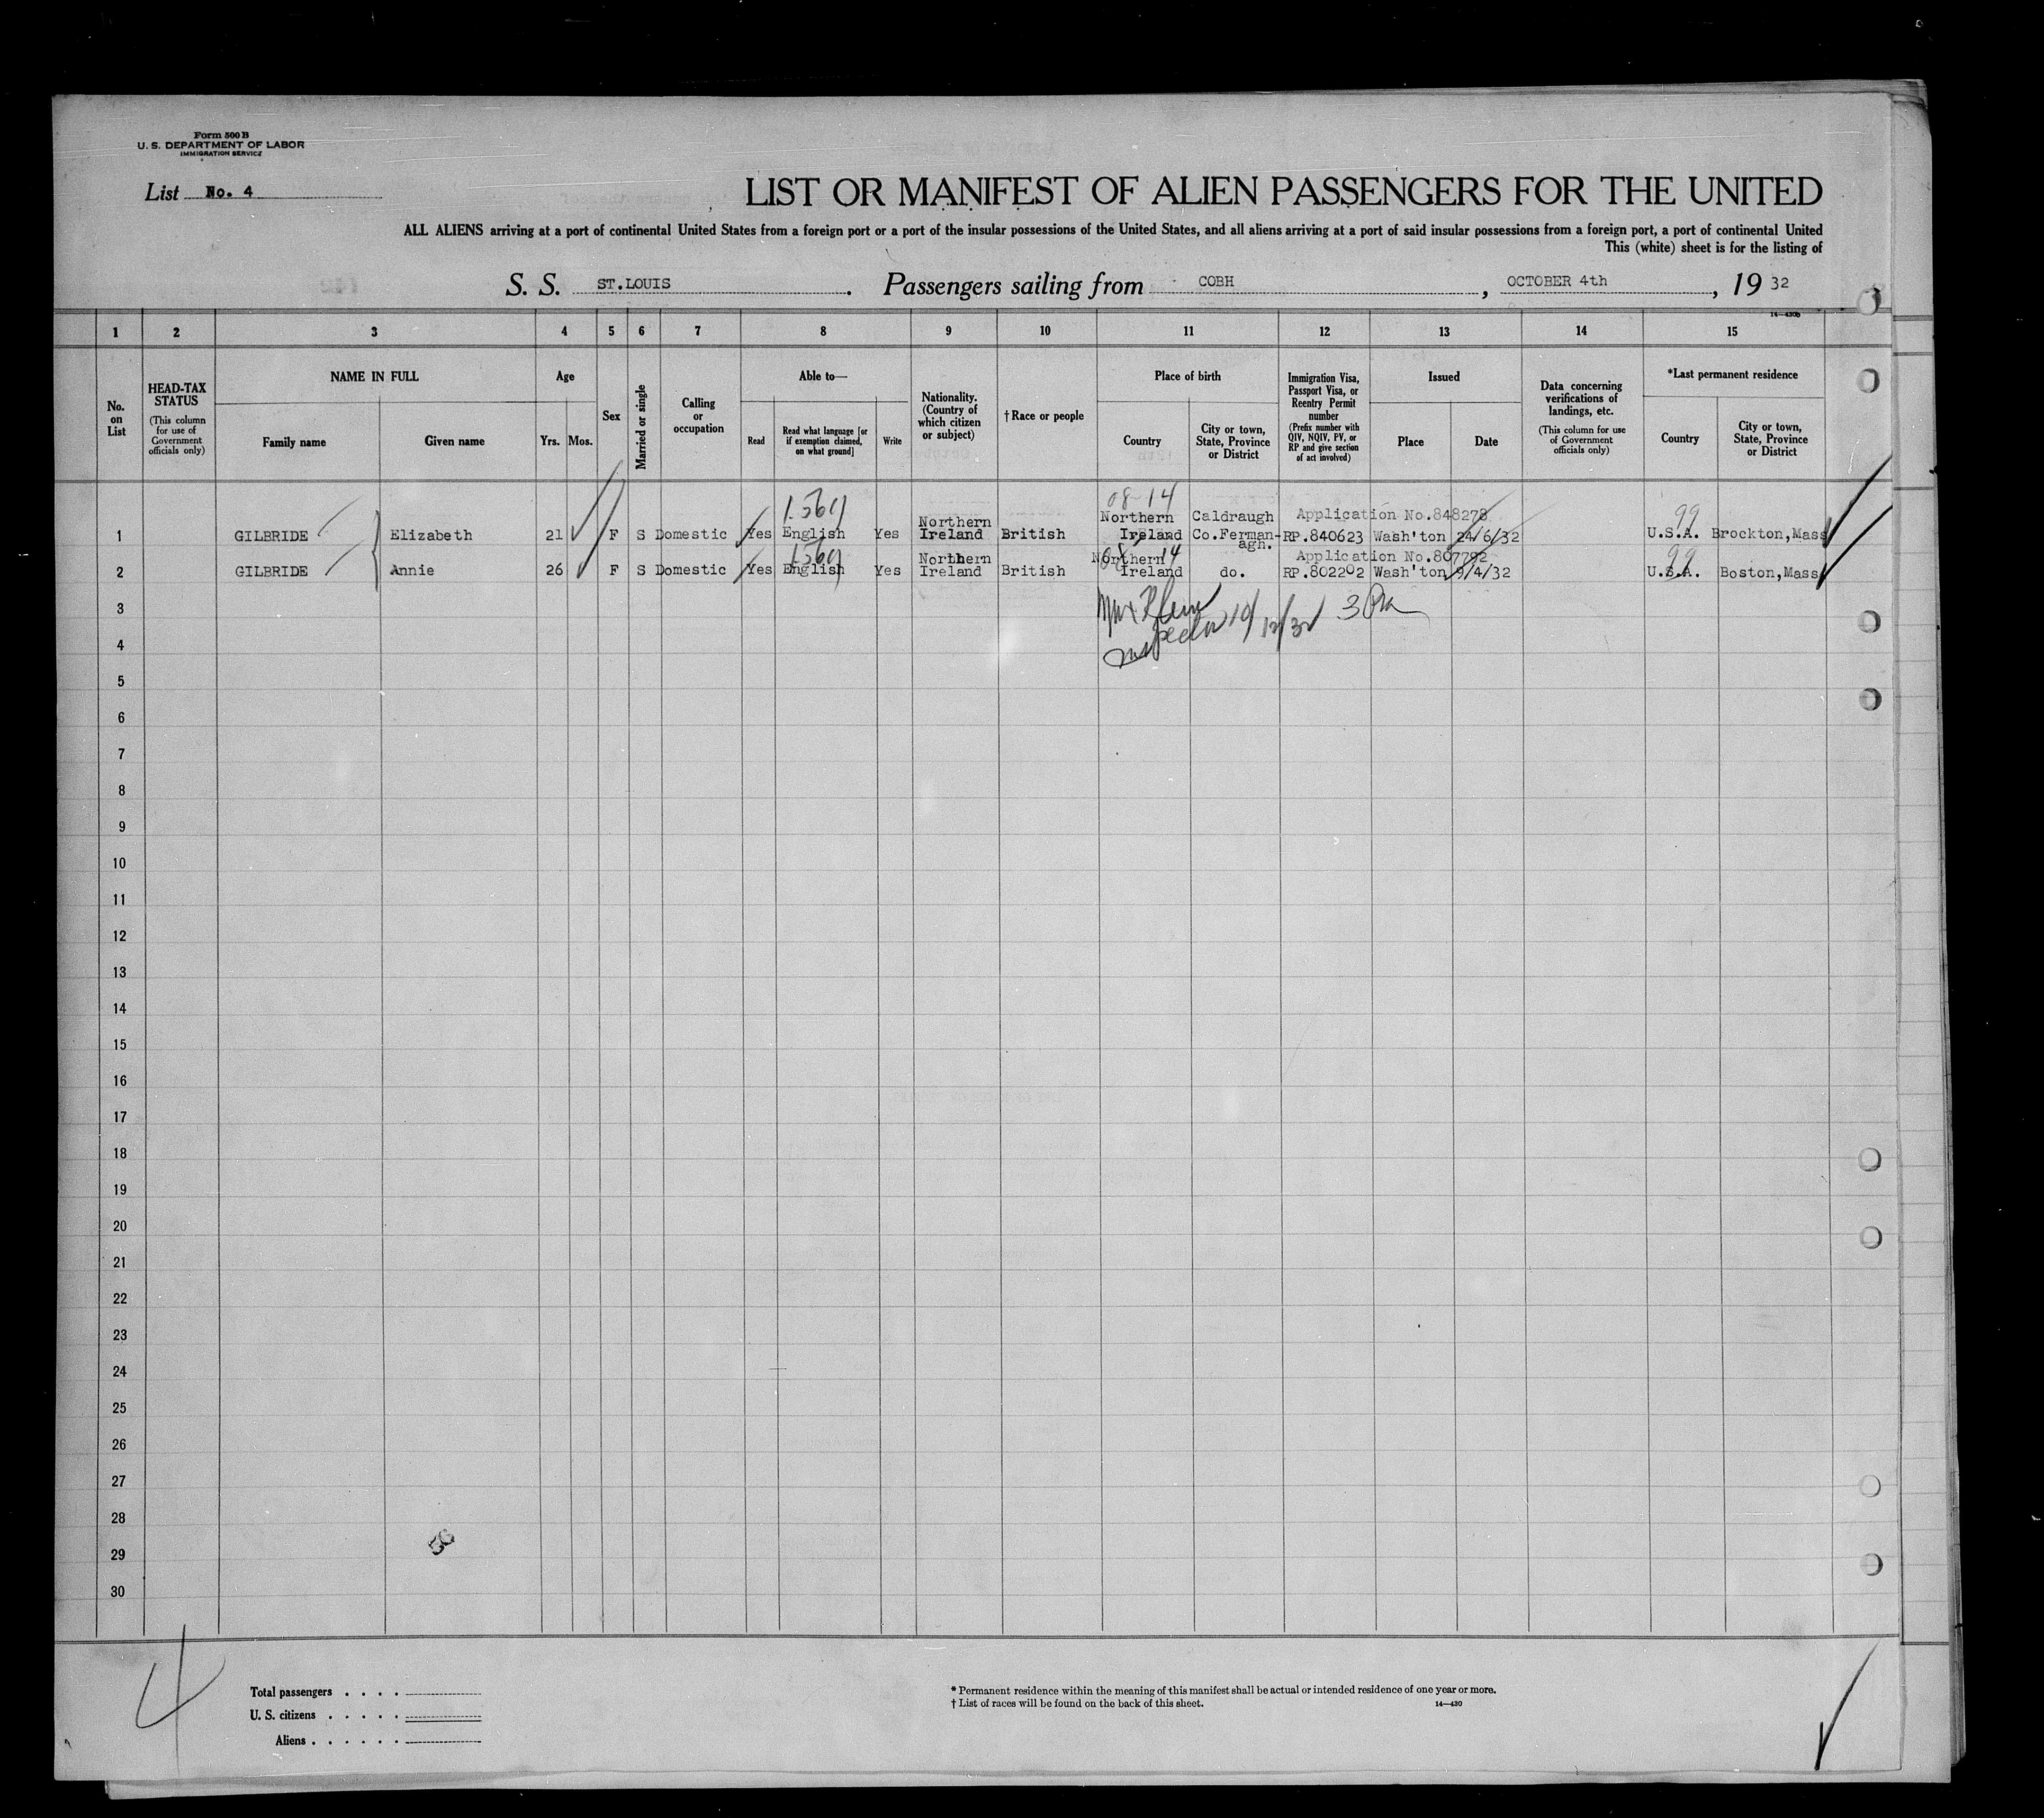 Form 500 B
U. S. DEPARTMENT OF LABOR
IMMIGRATION SERVICE
List No. 4
LIST OR MANIFEST OF ALIEN PASSENGERS FOR THE UNITED
ALL ALIENS arriving at a port of continental United States from a foreign port or a port of the insular possessions of the United States, and all aliens arriving at a port of said insular possessions from a foreign port, a port of continental United
This (white) sheet is for the listing of
S. S. ST.LOUIS . Passengers sailing from COBH , OCTOBER 4th , 19 32
14—430b
1 2 3 4 5 6 7 8 9 10 11 12 13 14 15
No. on List
HEAD-TAX STATUS
(This column for use of Government officials only)
NAME IN FULL
Family name
Given name
Age
Yrs.
Mos.
Sex
Married or single
Calling or occupation
Able to—
Read
Read what language [or if exemption claimed, on what ground]
Write
Nationality. (Country of which citizen or subject)
† Race or people
Place of birth
Country
City or town, State, Province or District
Immigration Visa, Passport Visa, or Reentry Permit number
(Prefix number with QIV, NQIV, PV, or RP and give section of act involved)
Issued
Place
Date
Data concerning verifications of landings, etc.
(This column for use of Government officials only)
*Last permanent residence
Country
City or town, State, Province or District
08-14
99
1 GILBRIDE Elizabeth 21 F S Domestic Yes English Yes Northern Ireland British Northern Ireland Caldraugh Co.Ferman-agh. Application No.848278 RP.840623 Wash'ton 24/6/32 U.S.A. Brockton,Mass
99
2 GILBRIDE Annie 26 F S Domestic Yes English Yes Northern Ireland British Northern Ireland do. Application No.807792 RP.802202 Wash'ton 9/4/32 U.S.A. Boston,Mass
3
Inspector 10/12/32
4
5
6
7
8
9
10
11
12
13
14
15
16
17
18
19
20
21
22
23
24
25
26
27
28
29
30
56
4
Total passengers . . . .
U. S. citizens . . . . .
Aliens . . . . . .
* Permanent residence within the meaning of this manifest shall be actual or intended residence of one year or more.
† List of races will be found on the back of this sheet.
14—430